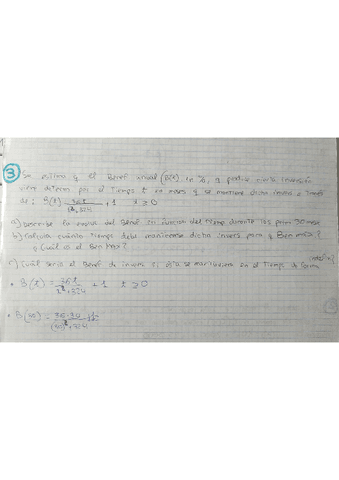 3 Se estima q el Benef anual (B(t)) en %, q produce cierta inversión
viene determ por el tiempo t en meses q se mantiene dicha invers a través
de: B(t) = 36t / t²+324 + 1 t ≥ 0
a) Describe la evoluc del Benef en función del tiempo durante los prims 30 mese
b) Calcula cuánto tiempo debe mantenerse dicha invers para q Ben máx?
y Cuál es el Ben Máx?
c) Cuál sería el Benef de invers si esta se mantuviera en el tiempo de forma
• B(t) = 36t / t²+324 + 1 t ≥ 0
• B(30) = 36·30 / (30)²+324